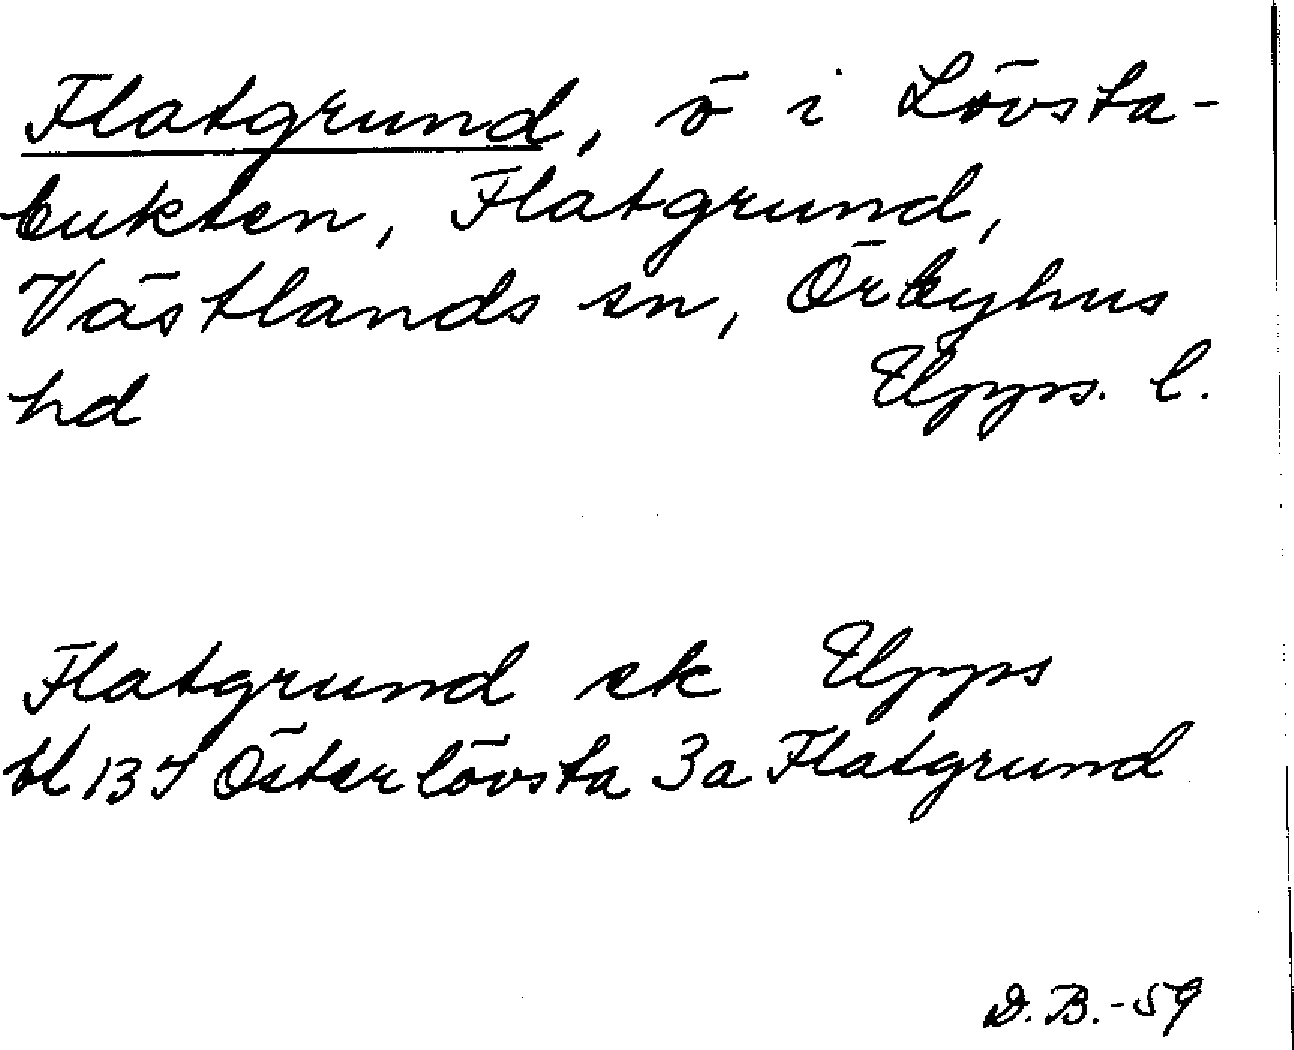 Flatgrund, ö i Lövsta-
bukten, Flatgrund,
Västlands sn, Örbyhus
hd Upps. l.
Flatgrund ek Upps
bl 134 Österlövsta 3a Flatgrund
D.B.-59